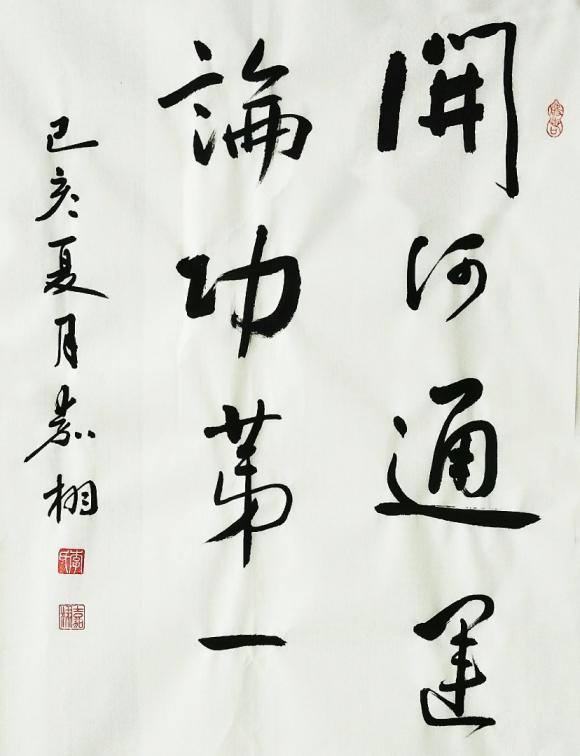 開河通運
論功苐一
己亥夏月嘉栩
李氏